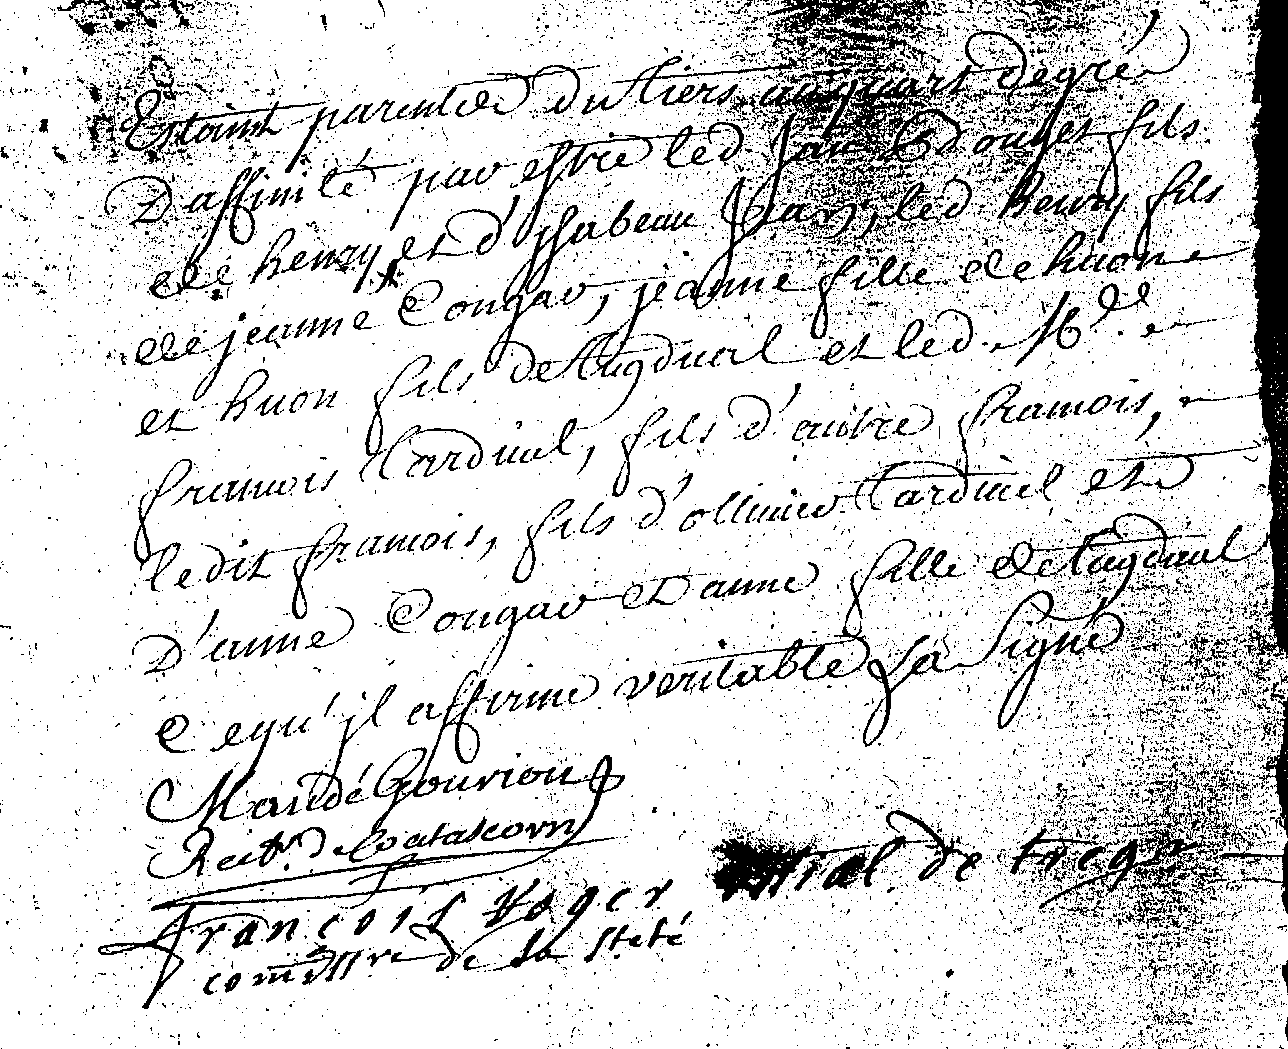 Estaint parentéé du tiers au quart degré
D'affinité par estre led Jan Bdouget fils
de henry et d'yssabeau Jan, led henry fils
de jeanne Cougar, jeanne fille de huon
et huon fils de tugdual et led. Mb.de
framois Cardinal, fils d'autre framois,
ledit framois, fils d'ollivier Cardinal et
D'anne Cougar D'anne fille de tugdual
Cequ'jl affirme veritable La Signé
Mandé Gourion
Rectr. de Coatascorn
François Roger offial de tregr
comissre de sa steté